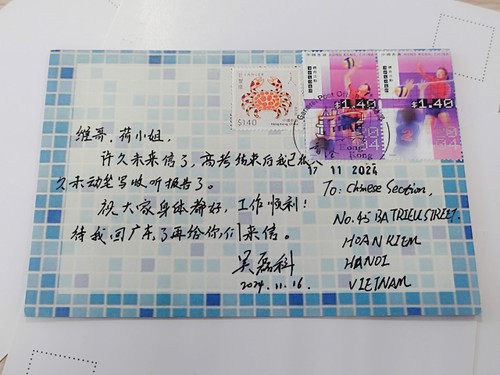 维哥、蒋小姐,
许久未来信了,高考结束后我已很久
久未动笔写收听报告了。
祝大家身体都好,工作顺利!
待我回广东了再给你们来信。
吴磊科
2024.11.16.
$1.40
$1.40
$1.40
Post Office
Hong
Kong
17 11 2024
To: Chinese Section,
No.45 BA TRIEU STREET.
HOAN KIEM
HANOI
VIETNAM